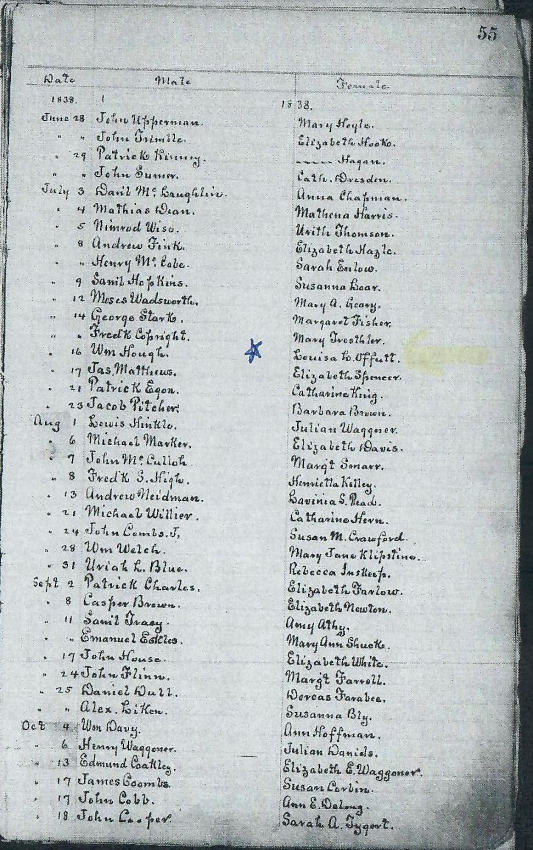 55
Date Male Female
1838. 1838.
June 28 John Upperman. Mary Hoyle.
" " John Trimble. Elizabeth Hook.
" 29 Patrick Kinney. ----- Hagan.
" " John Sumer. Cath. Dresden.
July 3 Danil McLaughlin. Anna Chapman.
" 4 Mathias Dean. Mathena Harris.
" 5 Nimrod Wise. Urith Thomson.
" 8 Andrew Fink. Elizabeth Hazle.
" " Henry McCabe. Sarah Enlow.
" 9 Samil Hopkins. Susanna Loar.
" 12 Moses Wadsworth. Mary A. Geary.
" 14 George Stark. Margaret Fisher.
" " Fredk Copright. Mary Troethler.
" 16 Wm Hough. Louisa L. Offutt.
" 17 Jas. Matthews. Elizabeth Spencer.
" 21 Patrick Egon. Catharine King.
" 23 Jacob Pitcher. Barbara Brown.
Aug 1 Lewis Hinkle. Julian Waggoner.
" 6 Michael Marker. Elizabeth Davis.
" 7 John McCulloh. Margt Smarr.
" 8 Fredk S. High. Henrietta Kelley.
" 13 Andrew Neidman. Lavinia S. Read.
" 21 Michael Willier. Catharine Hern.
" 24 John Combs. J. Susan M. Crawford.
" 28 Wm Welch. Mary Jane Klipstine.
" 31 Uriah L. Blue. Rebecca Inskeep.
Sept 2 Patrick Charles. Elizabeth Farlow.
" 8 Casper Brown. Elizabeth Newton.
" 11 Samil Tracy. Amy Athy.
" " Emanuel Eckles. Mary Ann Shuck.
" 17 John House. Elizabeth White.
" 24 John Flinn. Margt Farrell.
" 25 Daniel Dull. Dorcas Farabee.
" " Alex. Liken. Susanna Bly.
Oct 4 Wm Davy. Ann Hoffman.
" 6 Henry Waggoner. Julian Daniels.
" 13 Edmund Coakley. Elizabeth E. Waggoner.
" 17 James Coombs. Susan Corbin.
" 17 John Cobb. Ann E. DeLong.
" 18 John Cooper. Sarah A. Tygert.